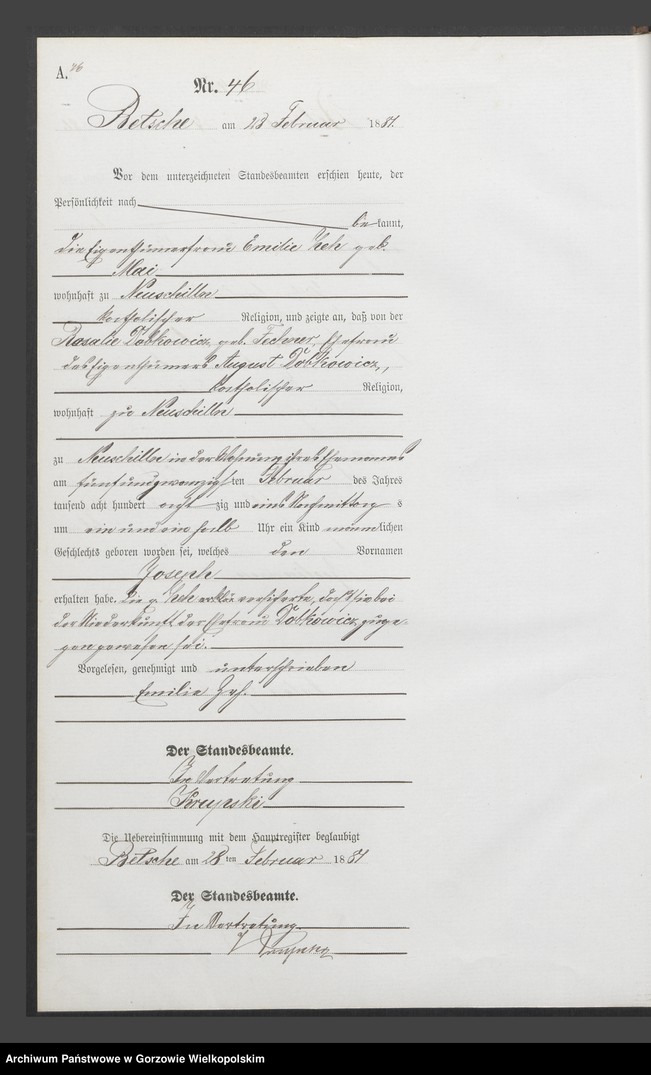 A. 46
Nr. 46
Betsche am 28 Februar 1881.
Vor dem unterzeichneten Standesbeamten erschien heute, der
Persönlichkeit nach
bekannt,
die Eigenthümerfrau Emilie Zeh geb.
Mai
wohnhaft zu Neuschilln
katholischer Religion, und zeigte an, daß von der
Rosalie Dobkowicz, geb. Fechner, Ehefrau
des Eigenthümers August Dobkowicz,
katholischer Religion,
wohnhaft zu Neuschilln
zu Neuschilln in der Wohnung ihres Ehemannes
am fünfundzwanzigsten Februar des Jahres
tausend acht hundert achtzig und eins Nachmittags
um ein und ein halb Uhr ein Kind männlichen
Geschlechts geboren worden sei, welches den Vornamen
Joseph
erhalten habe. Die p. Zeh versicherte, daß sie bei
der Niederkunft der Ehefrau Dobkowicz zuge-
gen gewesen sei.
Vorgelesen, genehmigt und unterschrieben
Emilie Zeh.
Der Standesbeamte.
In Vertretung
Die Uebereinstimmung mit dem Hauptregister beglaubigt
Betsche am 28ten Februar 1881
Der Standesbeamte.
In Vertretung
Archiwum Państwowe w Gorzowie Wielkopolskim